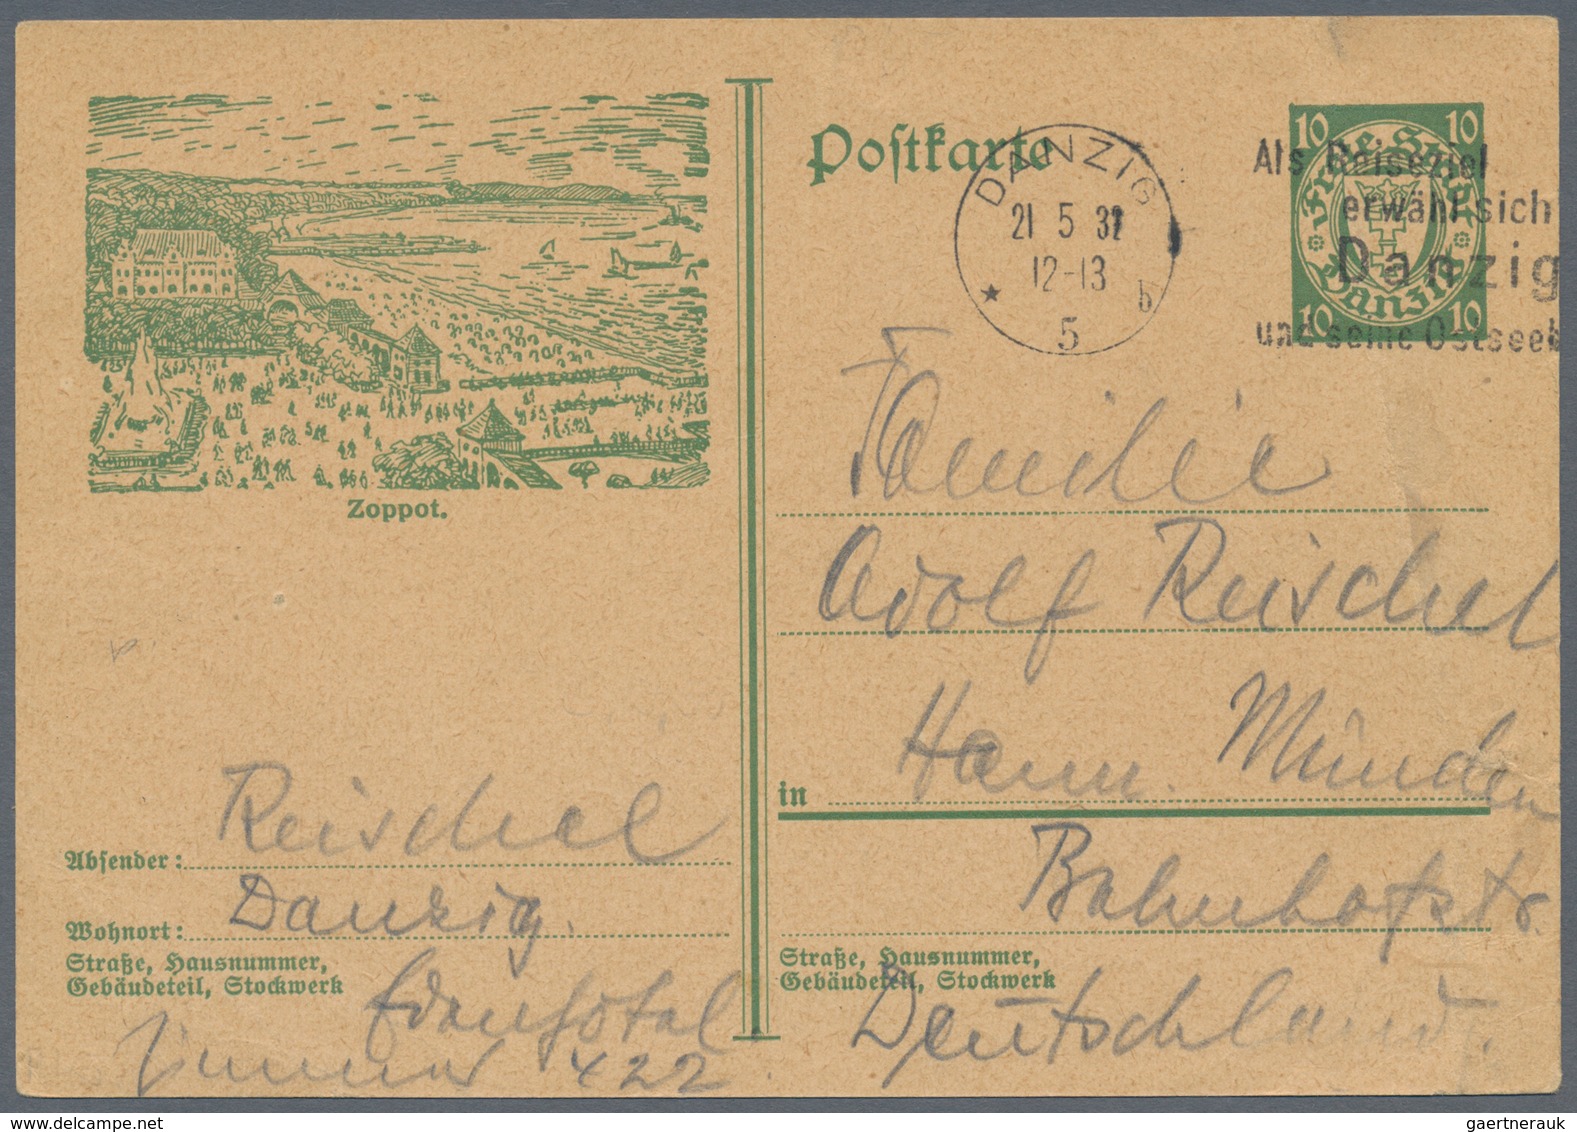 Postkarte
DANZIG
21 5 32
12-13
b
5
Als Reiseziel
erwähl sich
Danzig
und seine Ostseeb
10 10
Freie Stadt
Danzig
10 10
Zoppot.
Familie
Adolf Reischel
in Hann. Münden
Bahnhofstr.
Straße, Hausnummer,
Gebäudeteil, Stockwerk
Deutschland.
Absender: Reischel
Wohnort: Danzig.
Straße, Hausnummer,
Gebäudeteil, Stockwerk
Zimmer 422
gaertnerauk